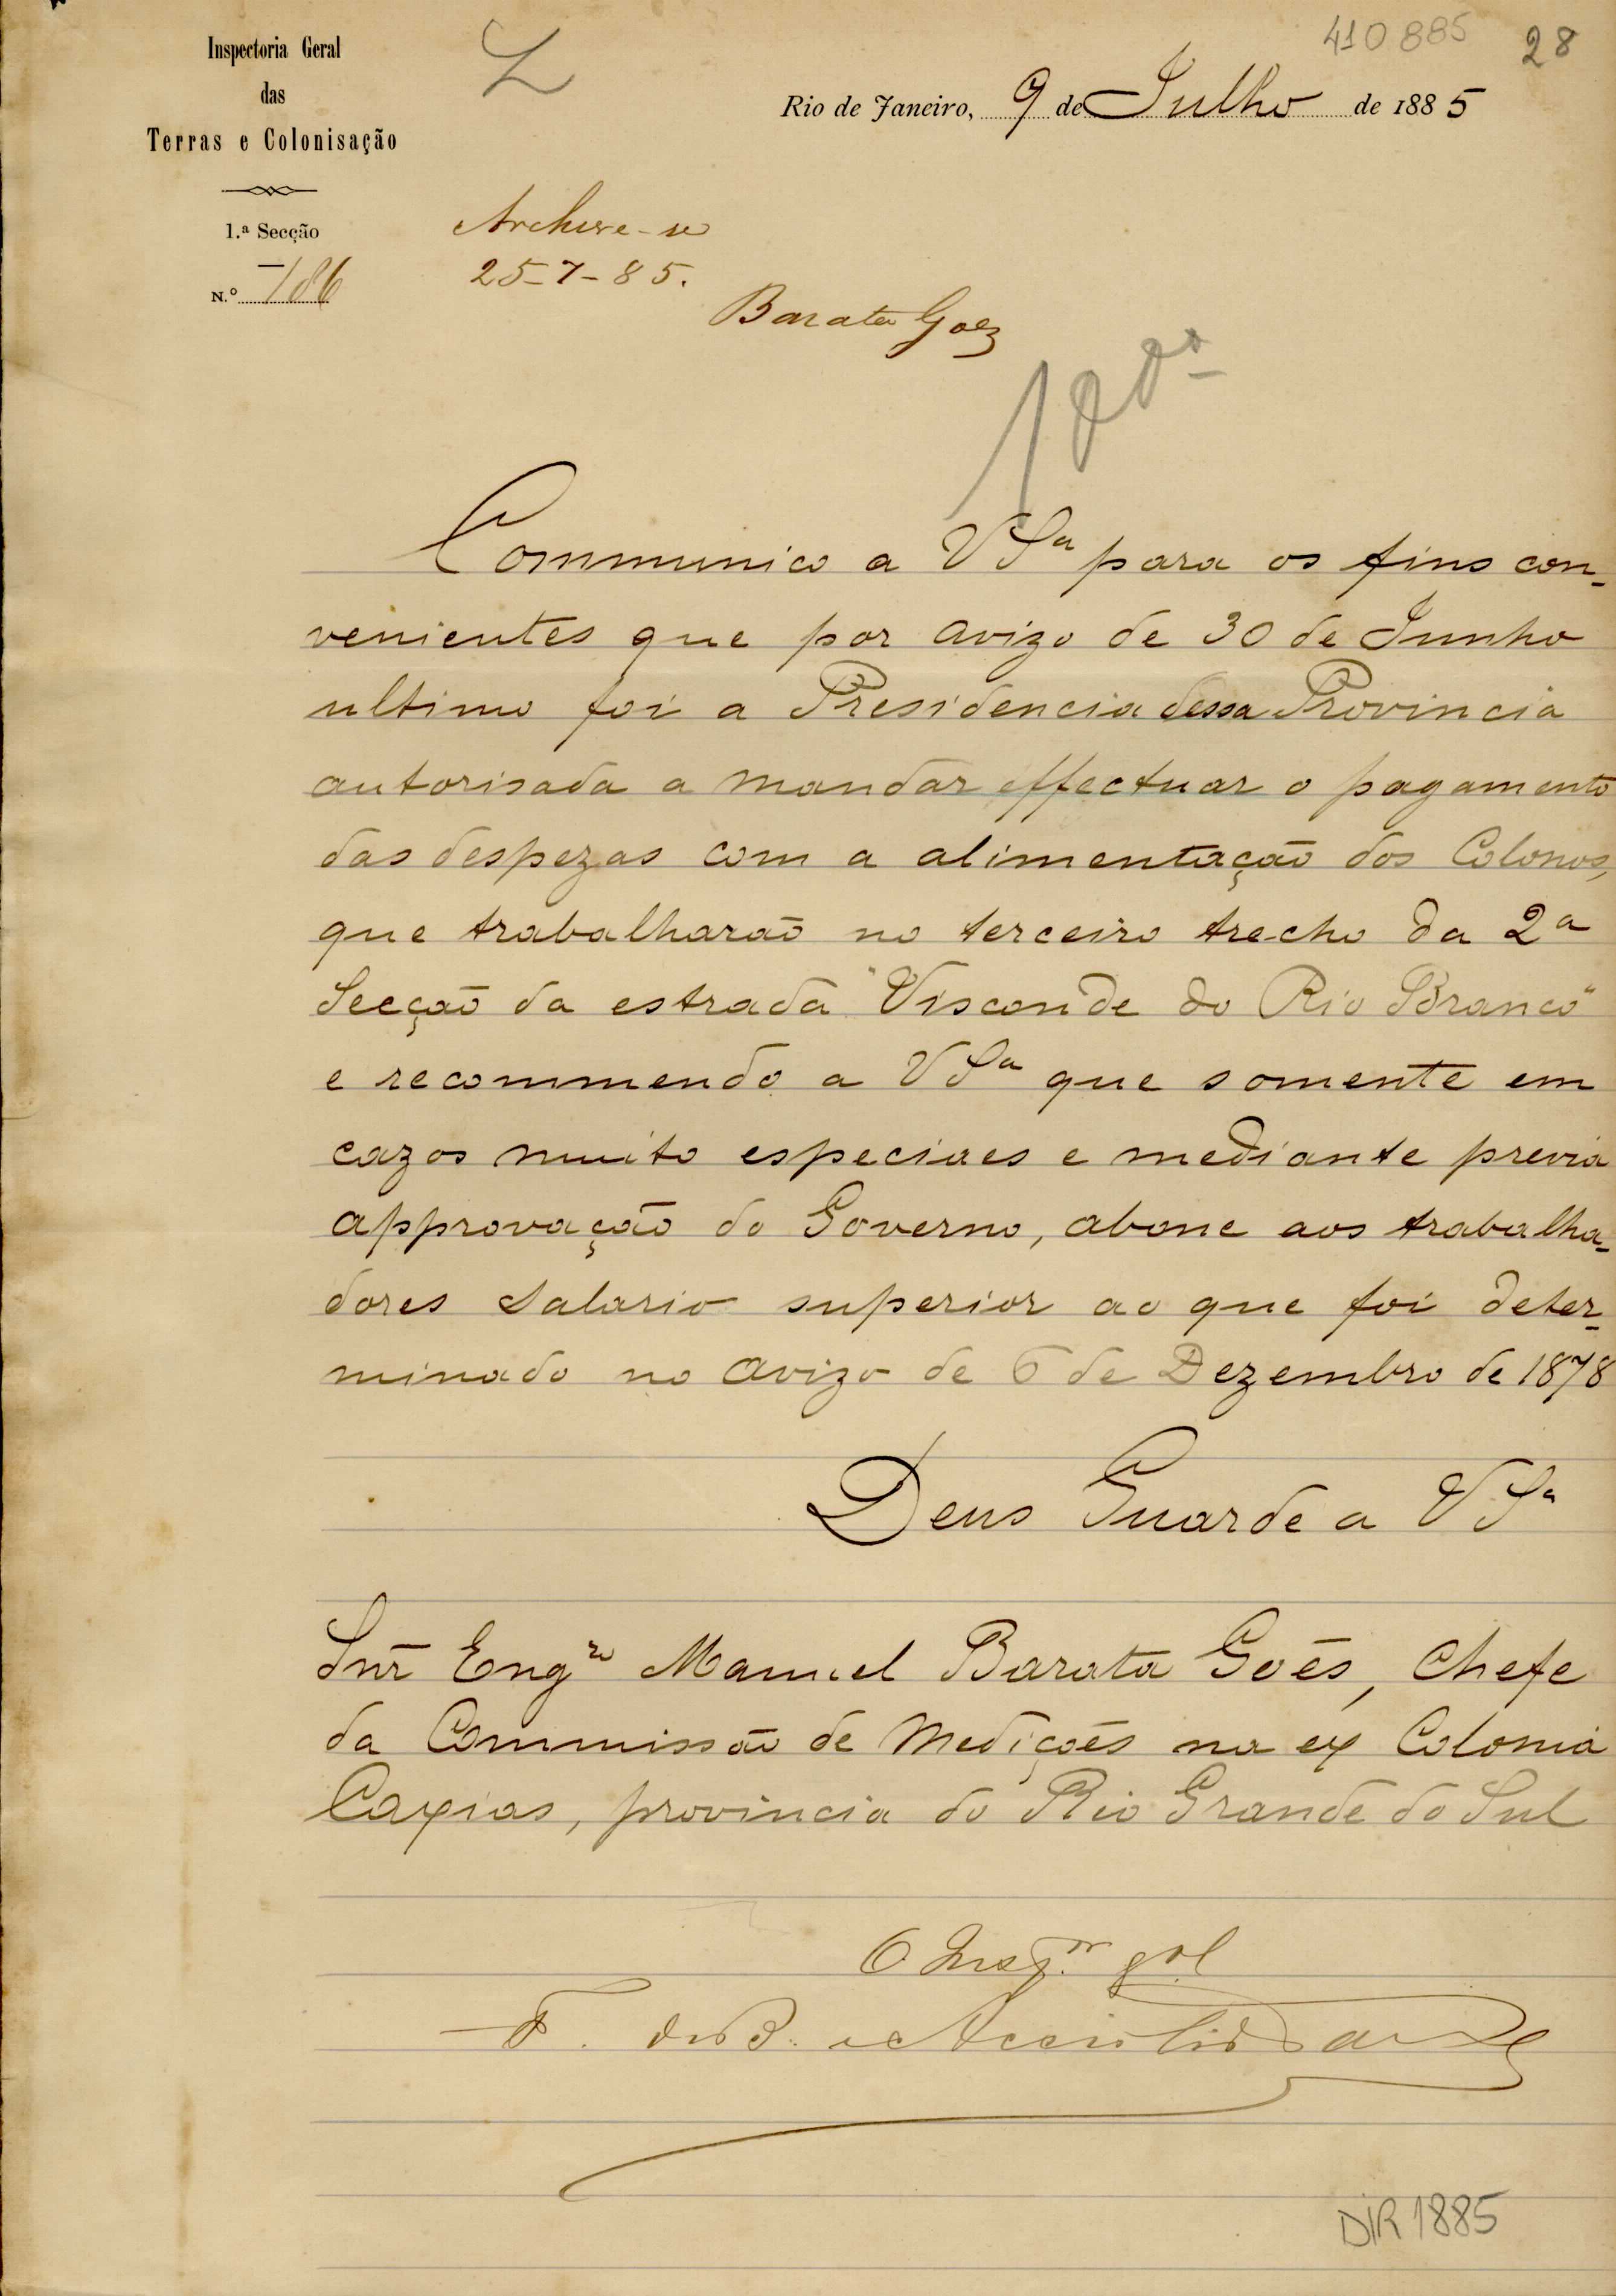 410885 28
Inspectoria Geral
das
Terras e Colonisação
Rio de Janeiro, 9 de Julho de 1885
1.ª Secção
N.º 186
Archive-se
25-7-85.
Barata Goez
Communico a V Sª para os fins con-
venientes que por avizo de 30 de Junho
ultimo foi a Presidencia dessa Provincia
autorisada a mandar effectuar o pagamento
das despezas com a alimentação dos Colonos,
que trabalharão no terceiro trecho da 2ª
Secção da estrada "Visconde do Rio Branco"
e recommendo a V Sª que somente em
cazos muito especiaes e mediante previa
approvação do Governo, abone aos trabalha-
dores salario superior ao que foi deter-
minado no avizo de 6 de Dezembro de 1878
Deus Guarde a V Sª
Snr Engro Manuel Barata Goés, Chefe
da Commissão de Medições na ex Colonia
Caxias, provincia do Rio Grande do Sul
O Insp.or g.al
F. de B. e Accioli de
DIR 1885